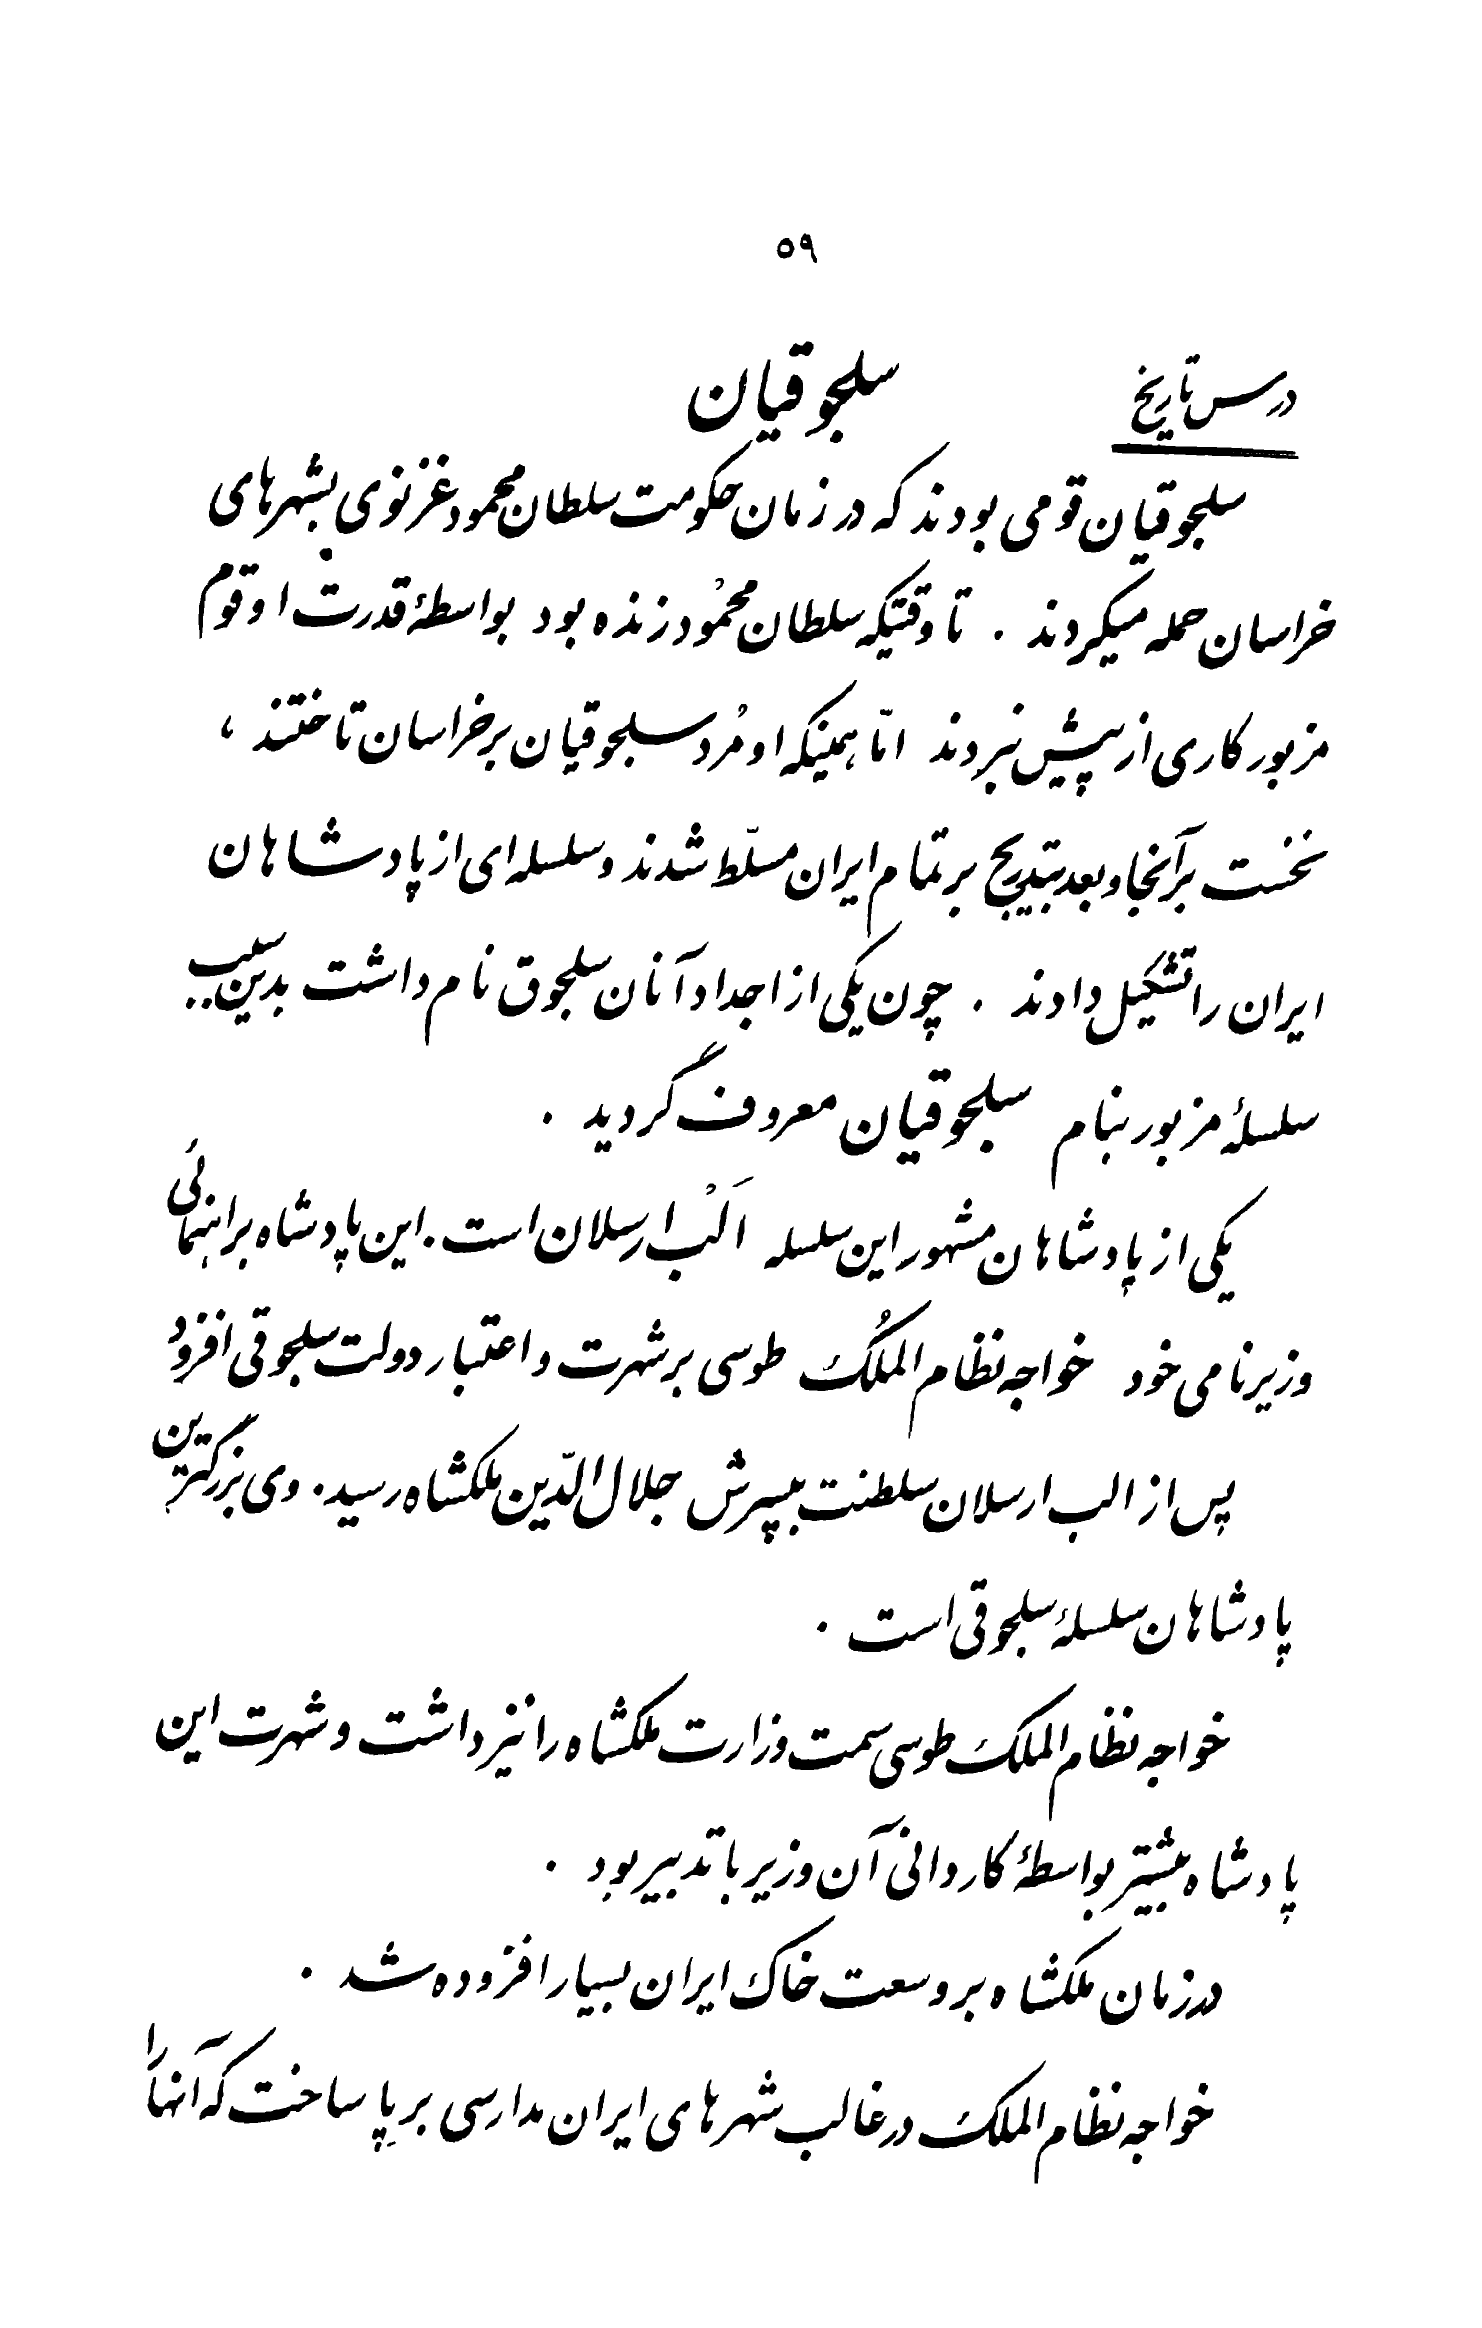 ۵۹
درس تاریخ
سلجوقیان
سلجوقیان قومی بودند که در زمان حکومت سلطان محمود غزنوی بشهرهای
خراسان حمله میکردند . تا وقتیکه سلطان محمُود زنده بود بواسطهٔ قدرت او قوم
مزبور کاری از پیش نبردند امّا همینکه او مُرد سلجوقیان بر خراسان تاختند ،
نخست بر آنجا و بعد بتدریج بر تمام ایران مسلّط شدند و سلسله ای از پادشاهان
ایران را تشکیل دادند . چون یکی از اجداد آنان سلجوق نام داشت بدین سبب
سلسلهٔ مزبور بنام سلجوقیان معروف گردید .
یکی از پادشاهان مشهور این سلسله اَلْب ارسلان است . این پادشاه براهنمائی
وزیر نامی خود خواجه نظام المُلک طوسی بر شهرت و اعتبار دولت سلجوقی افزوُد
پس از الب ارسلان سلطنت بپسرش جلال الدّین ملکشاه رسید . وی بزرگترین
پادشاهان سلسلهٔ سلجوقی است .
خواجه نظام الملک طوسی سمت وزارت ملکشاه را نیز داشت و شهرت این
پادشاه بیشتر بواسطهٔ کاردانی آن وزیر با تدبیر بود .
در زمان ملکشاه بر وسعت خاک ایران بسیار افزوده شد .
خواجه نظام الملک در غالب شهرهای ایران مدارسی بر پا ساخت که آنها را